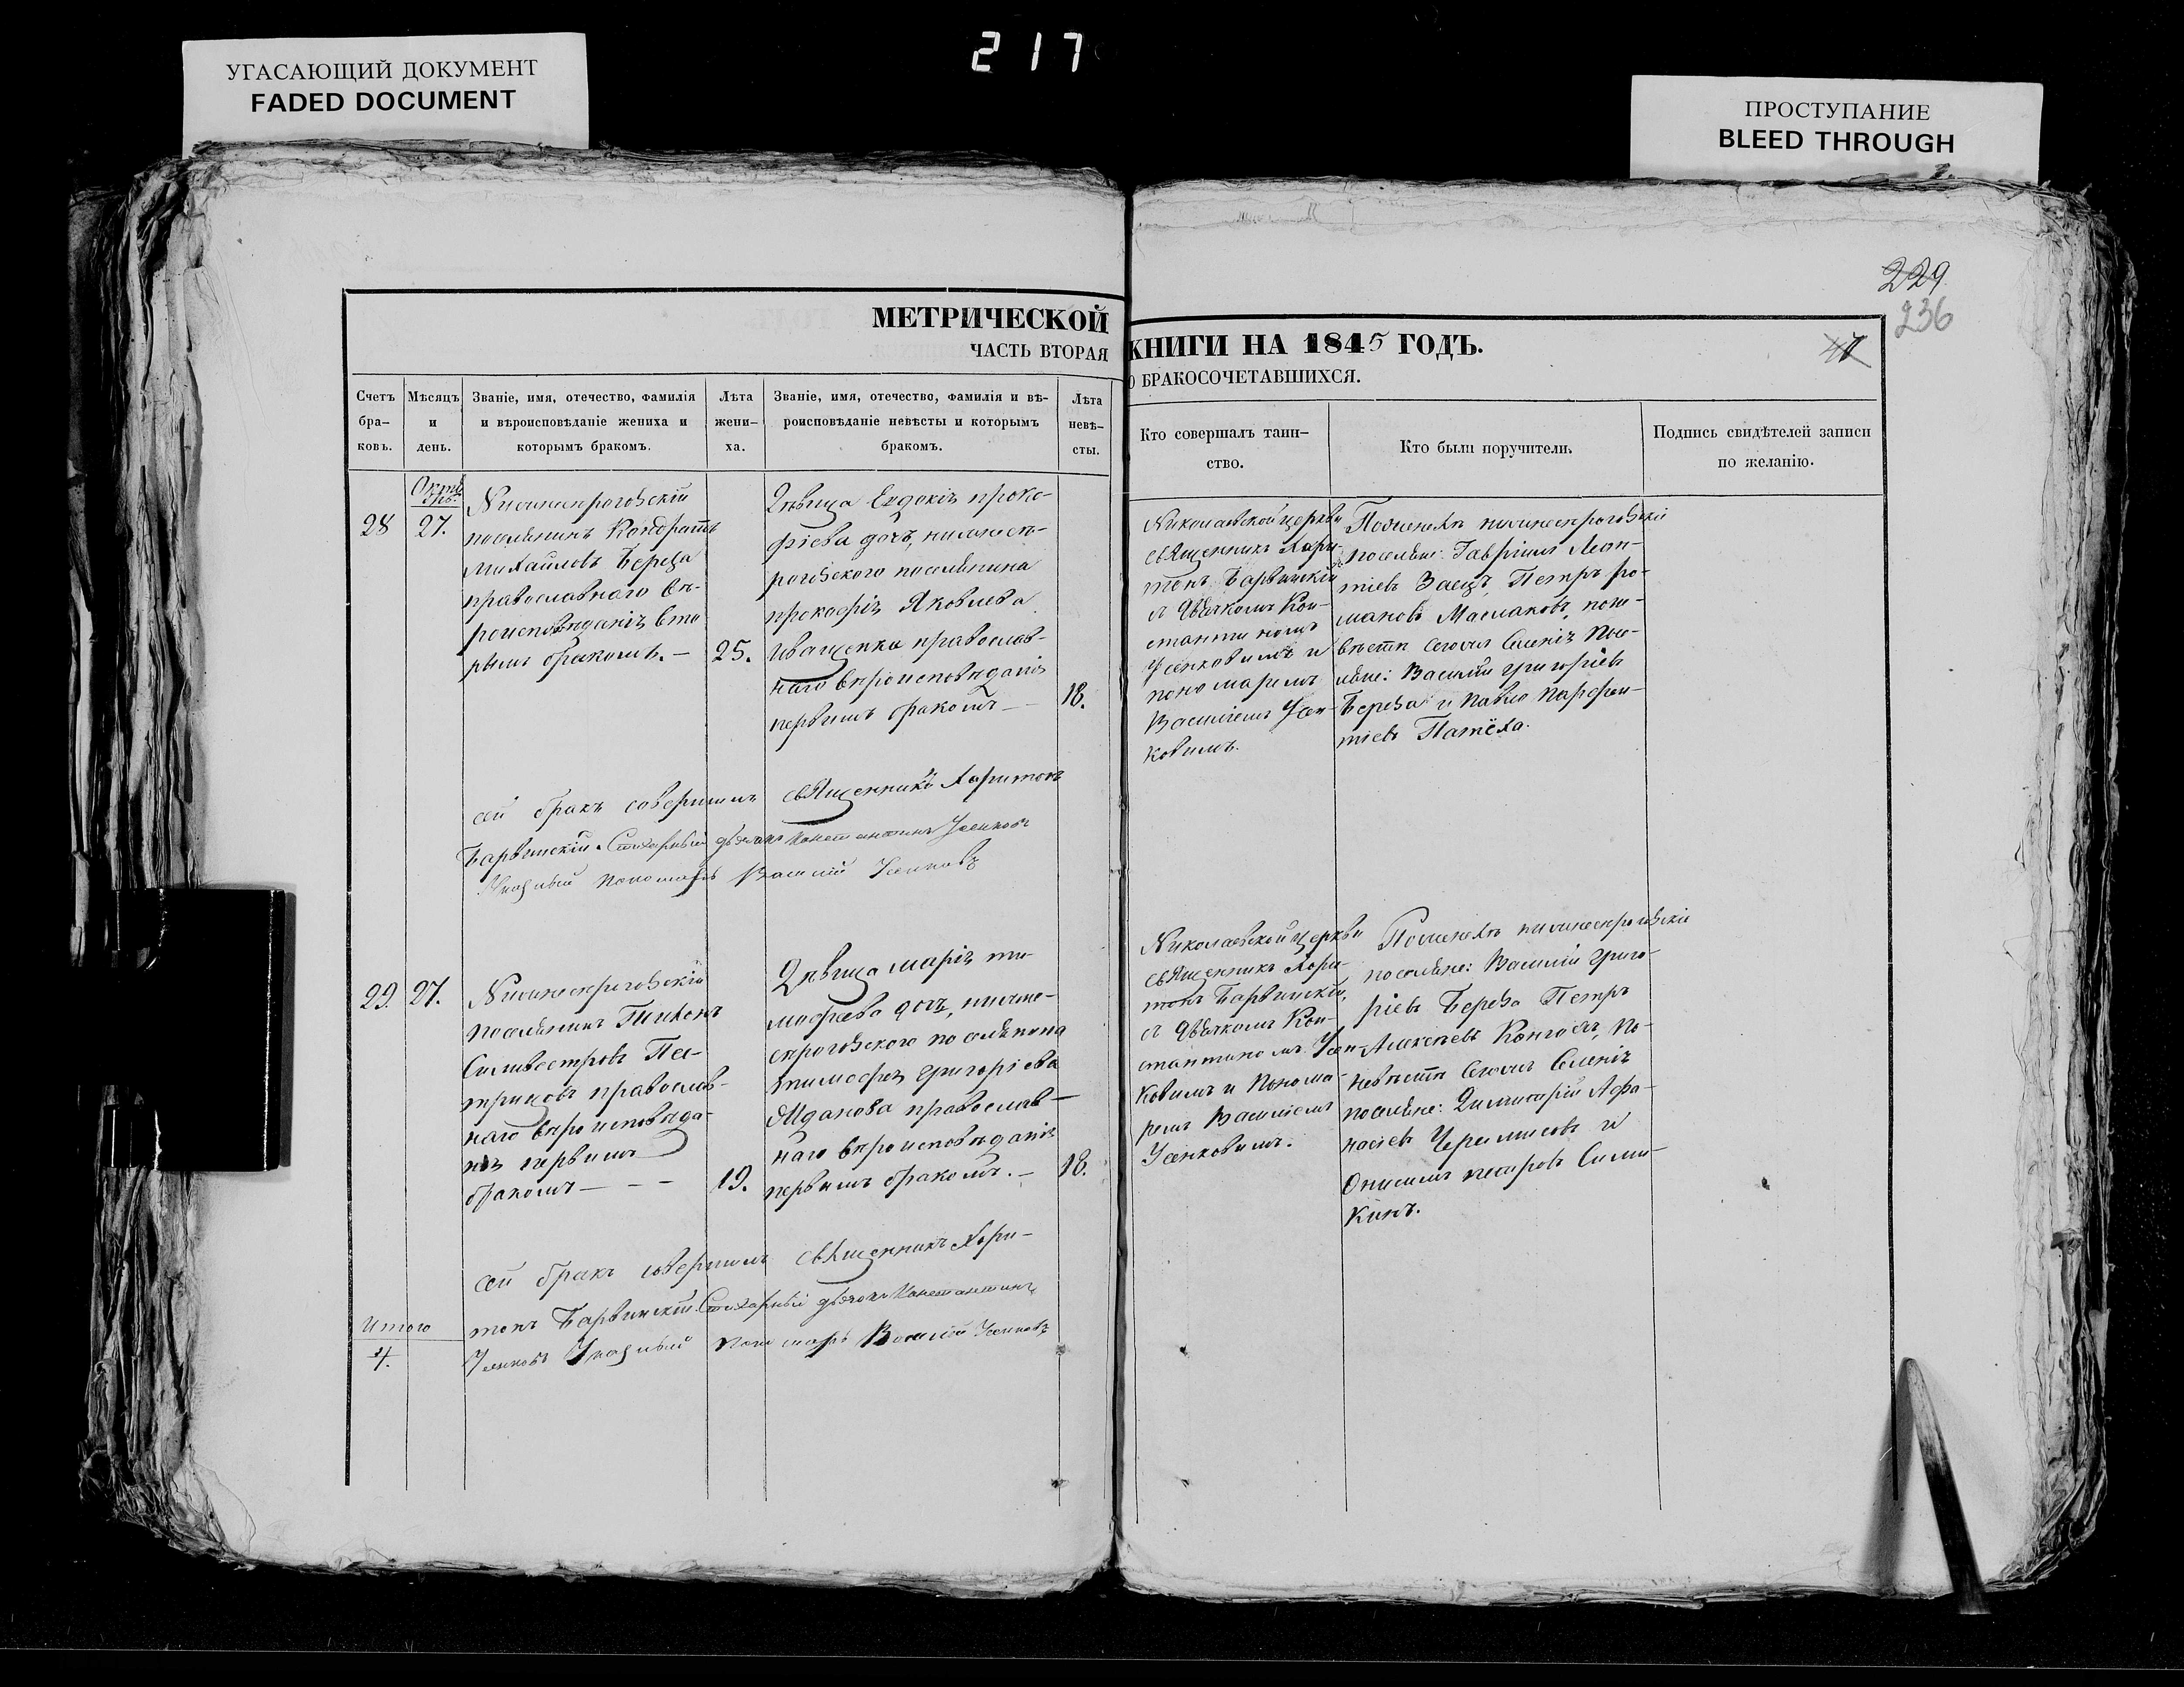 217
УГАСАЮЩИЙ ДОКУМЕНТ
FADED DOCUMENT
ПРОСТУПАНИЕ
BLEED THROUGH
229
236
МЕТРИЧЕСКОЙ
ЧАСТЬ ВТОРАЯ
КНИГИ НА 1845 ГОДЪ.
О БРАКОСОЧЕТАВШИХСЯ.
Счетъ бра-ковъ.
Мѣсяцъ и день.
Званіе, имя, отечество, фамилія
и вѣроисповѣданіе жениха и
которымъ бракомъ.
Лѣта жени-ха.
Званіе, имя, отечество, фамилія и вѣ-
роисповѣданіе невѣсты и которымъ
бракомъ.
Лѣта невѣ-сты.
Кто совершалъ таин-
ство.
Кто были поручители.
Подпись свидѣтелей записи
по желанію.
28
27.
Нижнесѣрогозскій
поселянинъ Кондратъ
Михайловъ Береза
православнаго вѣ-
роисповѣданія вто
рымъ бракомъ. —
25.
Дѣвица Евдокія проко-
фіева дочь, нижнесѣ-
рогозского поселянина
прокофія Яковлева
Иващенка православ-
наго вѣроисповѣданія
первымъ бракомъ —
18.
Николаевской церкви
священникъ Хари-
тонъ Барвинскій
съ дьячкомъ Кон-
стантиномъ
Усенковымъ и
пономаремъ
Василіемъ Усен-
ковымъ.
По женихѣ нижнесѣрогозскіе
поселяне: Гавріилъ Леон-
тіевъ Заецъ, Петръ ро-
мановъ Маслаковъ, по не-
вѣстѣ сегожъ селенія посе-
ляне: Василій григоріевъ
Береза и Павло Парфен-
тіевъ Патёха.
сей бракъ совершилъ священникъ Харитонъ
Барвинскій. Стихарный дьячокъ Константинъ Усенковъ
Указный пономарь Василій Усенковъ
29.
27.
Нижнесѣрогозскій
поселянинъ Тихонъ
Силивестровъ Пес-
трицовъ православ-
наго вѣроисповѣда-
нія первымъ
бракомъ — — —
19.
Дѣвица марія ти-
мофѣева дочь, нижне-
сѣрогозского поселянина
тимофея григоріева
Жданова православ-
наго вѣроисповѣданія
первымъ бракомъ. —
18.
Николаевской церкви
священникъ Хари-
тонъ Барвинскій,
съ дьячкомъ Кон-
стантиномъ Усен-
ковымъ и понома-
ремъ Василіемъ
Усенковымъ.
По женихѣ нижнесѣрогозскіе
поселяне: Василій григо-
ріевъ Береза Петръ
Алексѣевъ, по
невѣстѣ сегожъ селенія
поселяне: Димитрій Афа-
насіевъ Черемисовъ и
Онисимъ петровъ Сили-
кинъ.
сей бракъ совершилъ священникъ Хари-
тонъ Барвинскій. Стихарный дьячокъ Константинъ
Усенковъ Указный пономарь Василій Усенковъ
Итого
4.